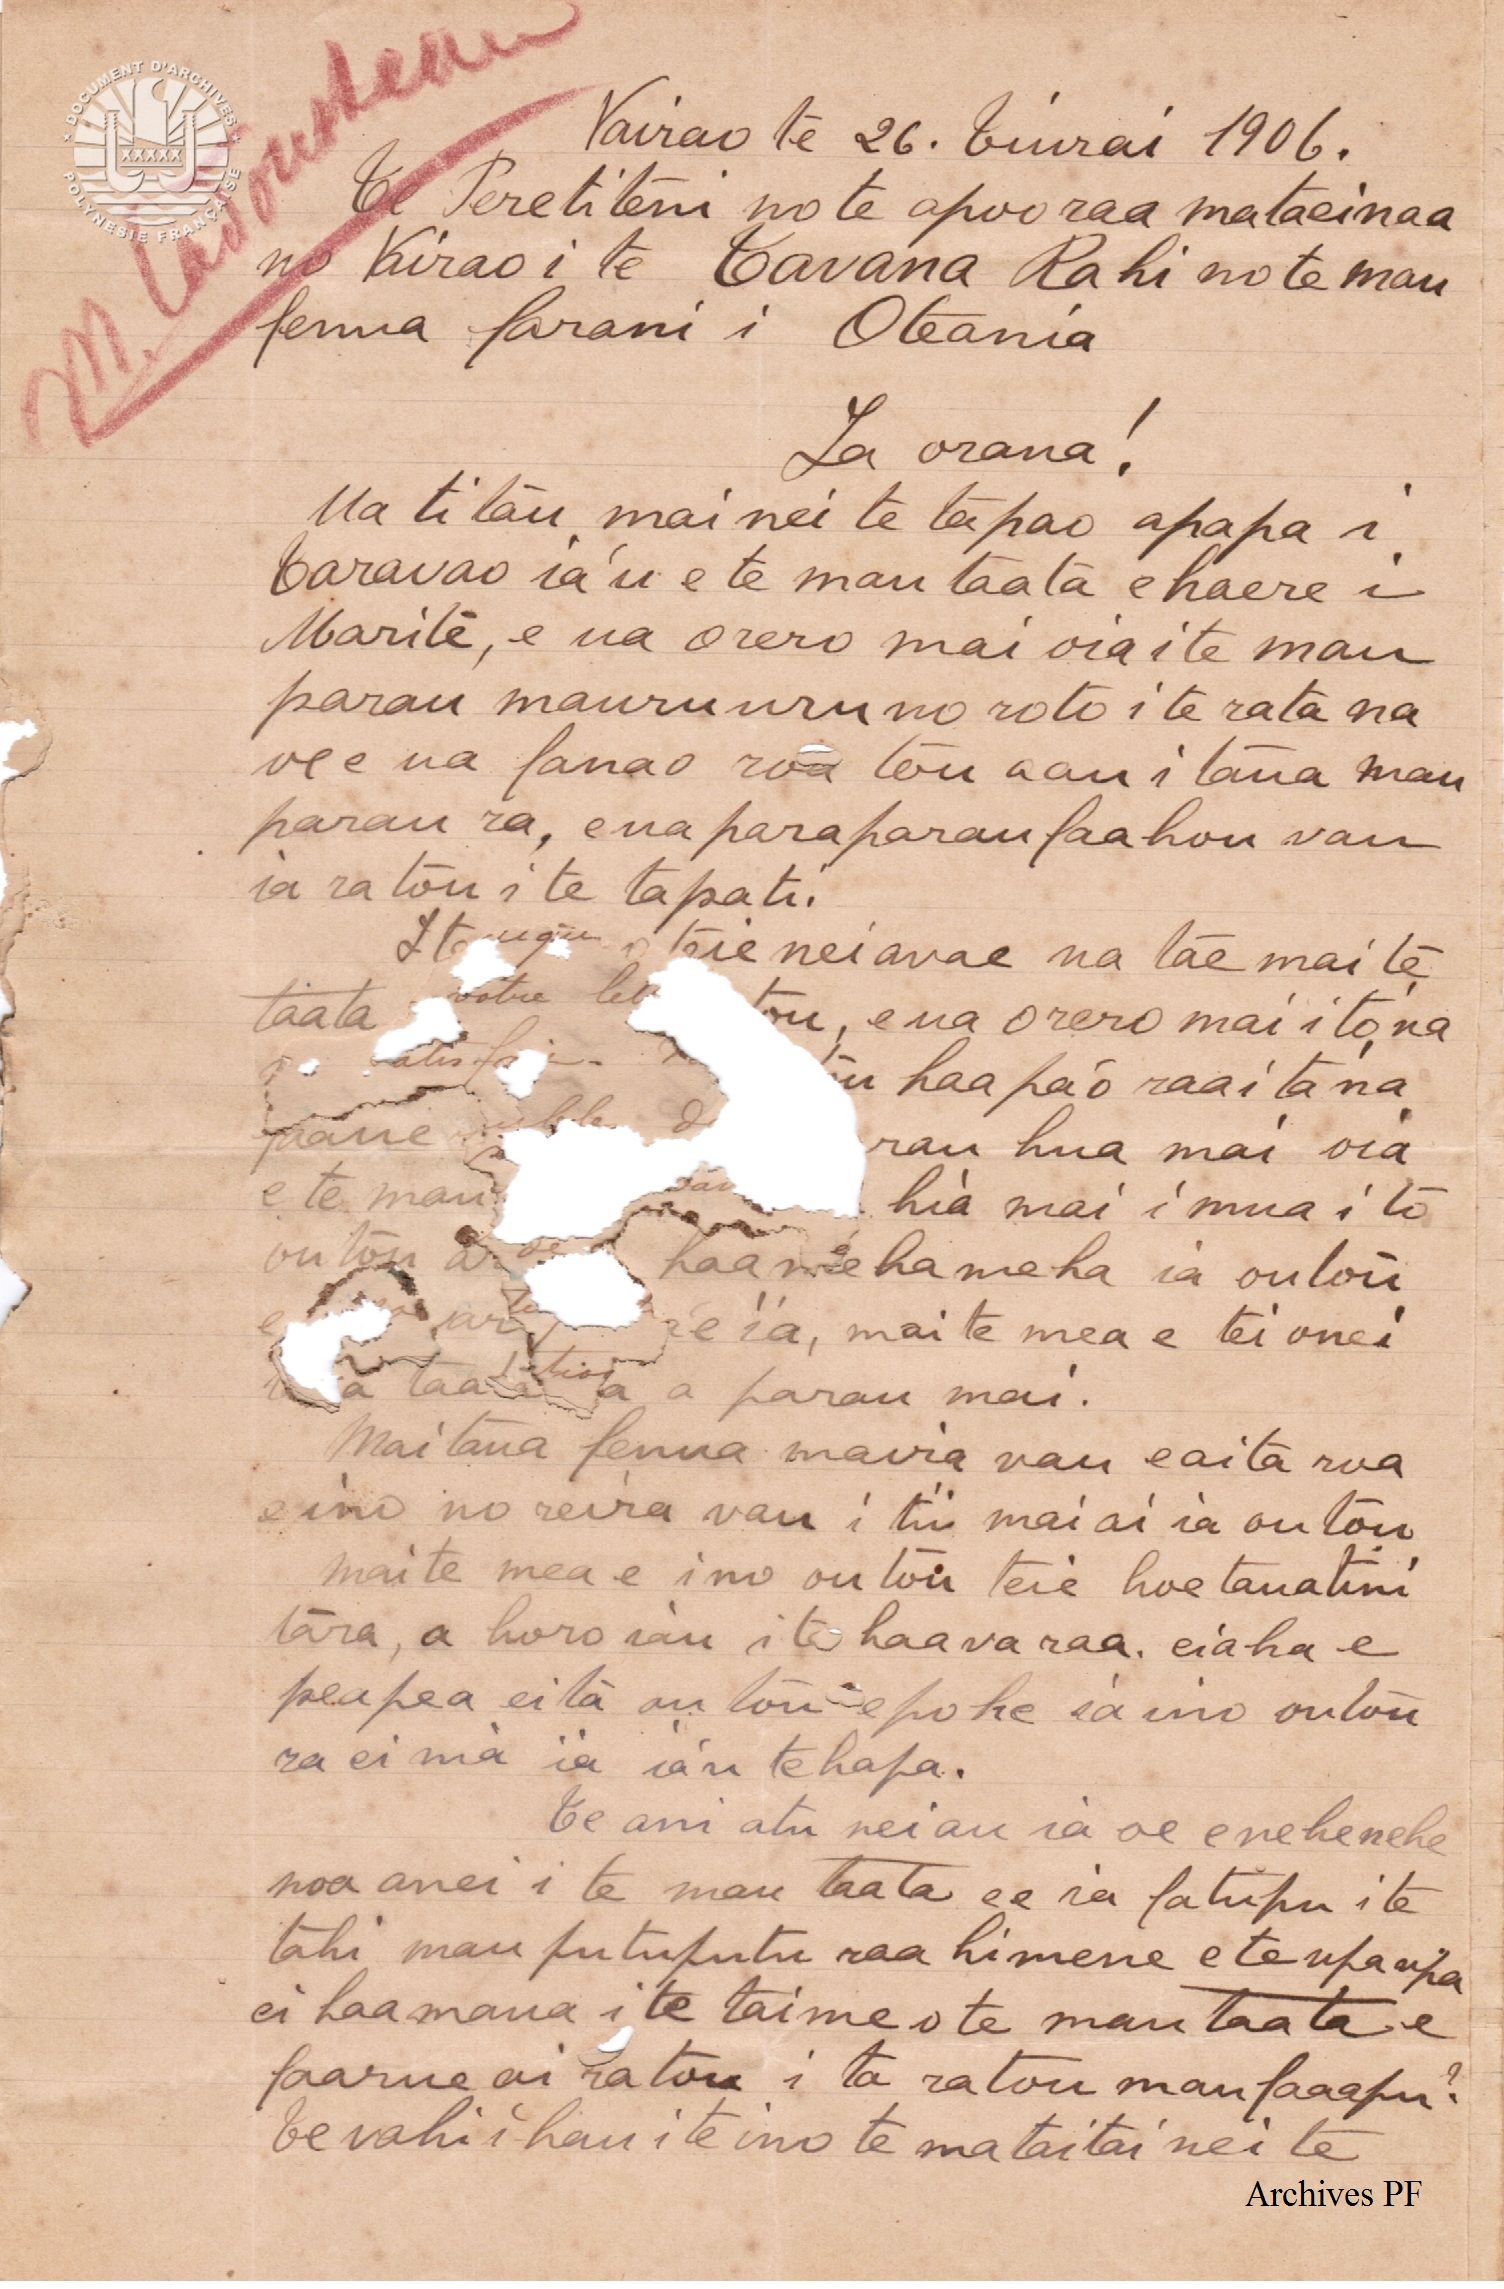 DOCUMENT D'ARCHIVES
POLYNESIE FRANÇAISE
M. Cadousteau
Vairao te 26. Tiurai 1906.
Te Peretiteni no te apooraa mataeinaa
no Vairao i te Tavana Rahi no te mau
fenua farani i Oteania
Ia orana!
Ua titau mai nei te tapao apapa i
Taravao ia'u e te mau taata e haere i
Marite, e ua orero mai oia i te mau
parau mauruuru no roto i te rata na
oe e ua fanao roa tou aau i tana mau
parau ra, e ua paraparau faahou vau
ia ratou i te tapati.
I te o teie nei avae ua tae mai te
taata tou, e ua orero mai i tona
haapao raa i tana
faaue rau hua mai oia
e te mau hia mai i mua i to
outou haamehameha ia outou
ia, mai te mea e tei onei
taata a parau mai.
Mai tana fenua mauria vau e aita roa
e ino no reira vau i tii mai ai ia outou
mai te mea e ino outou teie hoe tauatini
tara, a horo iau i te haavaraa. eiaha e
peapea eita outou e pohe ia ino outou
ra ei mà ia ia'u te hapa.
Te ani atu nei au ia oe e nehenehe
noa anei i te mau taata ee ia fatupu i te
tahi mau putuputu raa himene e te upaupa
ei haamaua i te taime o te mau taata e
faarue ai ratou i ta ratou mau faaapu?
Te vahi i hau i te ino te mataitai nei te
Archives PF